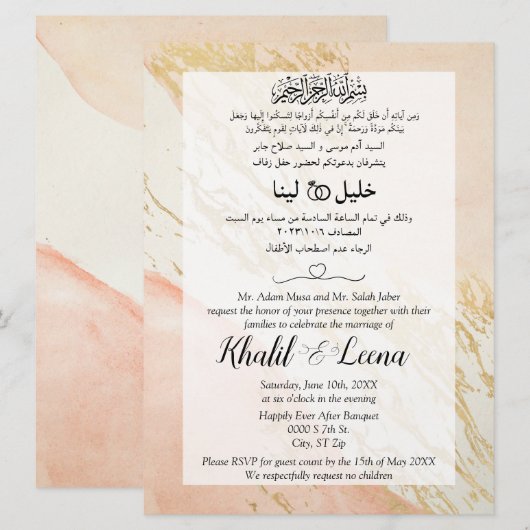 بسم الله الرحمن الرحيم
وَمِن آيَاتِهِ أَن خَلَقَ لَكُم مِن أَنفُسِكُم أَزوَاجًا لِتَسكُنوا إِلَيهَا وَجَعَلَ
بَينَكُم مَوَدَّةً وَرَحمَةً ۚ إِنَّ فِي ذَلِكَ لَآيَاتٍ لِقَومٍ يَتَفَكَّرُونَ
السيد آدم موسى و السيد صلاح جابر
يتشرفان بدعوتكم لحضور حفل زفاف
خليل لينا
وذلك في تمام الساعة السادسة من مساء يوم السبت
المصادف ٢٠٢٣\١٠\٦
الرجاء عدم اصطحاب الأطفال
Mr. Adam Musa and Mr. Salah Jaber
request the honor of your presence together with their
families to celebrate the marriage of
Khalil & Leena
Saturday, June 10th, 20XX
at six o'clock in the evening
Happily Ever After Banquet
0000 S 7th St.
City, ST Zip
Please RSVP for guest count by the 15th of May 20XX
We respectfully request no children